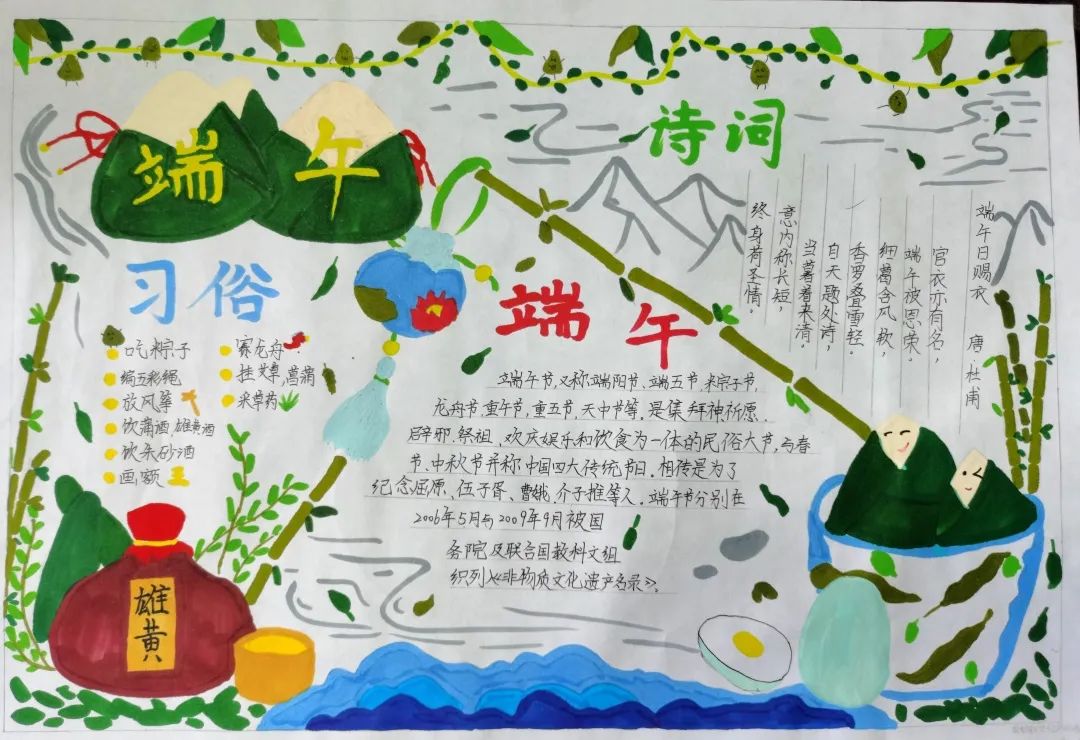 端午
习俗
吃粽子
编五彩绳
放风筝
饮蒲酒,雄黄酒
饮朱砂酒
画额
赛龙舟
挂艾草,菖蒲
采草药
雄黄
端午
端午节,又称端阳节、端五节,粽子节,
龙舟节,重午节,重五节,天中节等,是集拜神祈愿、
辟邪、祭祖、欢庆娱乐和饮食为一体的民俗大节,与春
节、中秋节并称中国四大传统节日。相传是为了
纪念屈原、伍子胥、曹娥、介子推等人。端午节分别在
2006年5月与2009年9月被国
务院及联合国教科文组
织列《非物质文化遗产名录》。
诗词
端午日赐衣 唐 杜甫
宫衣亦有名,
端午被恩荣。
细葛含风软,
香罗叠雪轻。
自天题处诗,
当暑着来清。
意内称长短,
终身荷圣情。